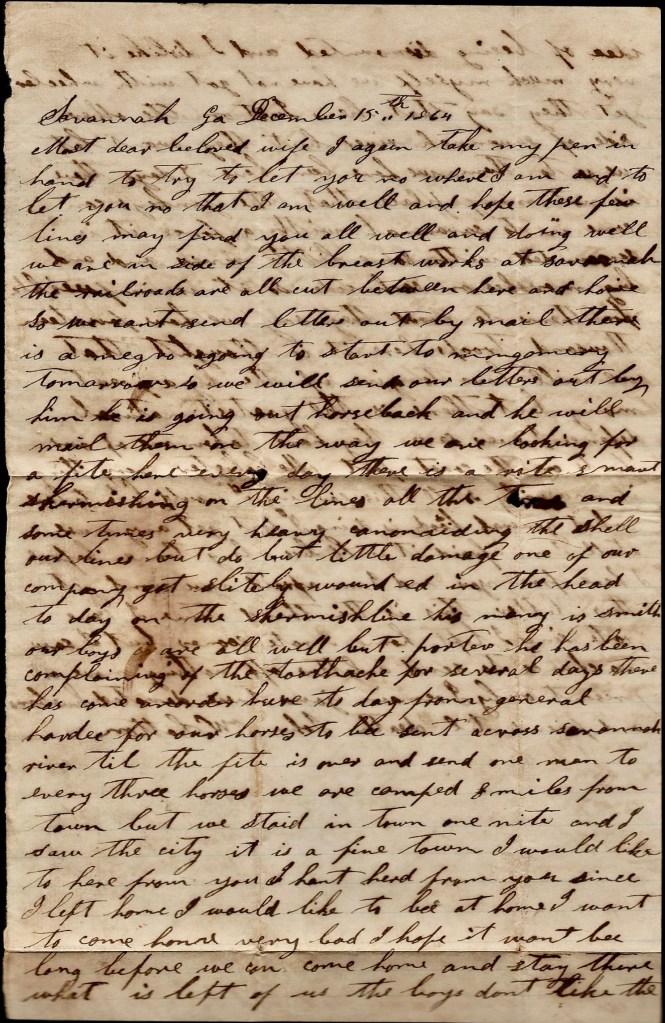 Savannah Ga December 15th 1864
Most dear beloved wife I again take my pen in
hand to try to let you no where I am and to
let you no that I am well and hope these few
lines may find you all well and doing well
we are in side of the breast works at savannah
the railroads are all cut between here and home
so we cant send letters out by mail there
is a negro agoing to start to mongomery
tomorrow so we will send our letters out by
him he is going out horseback and he will
mail them on the way we are looking for
a fite here every day there is a rite smart
skermishing on the lines all the time and
some tymes very heavy canonaiding the shell
our lines but do but little damage one of our
company got slitely wound ed in the head
to day on the skermishline his name is smith
our boys are all well but porter he has been
complaining of the toothache for several days there
has come an order here to day from general
hardee for our horses to be sent across savannah
river til the fite is over and send one man to
every three horses we are camped 8 miles from
town but we staid in town one nite and I
saw the city it is a fine town I would like
to here from you I hant herd from you since
I left home I would like to bee at home I want
to come home very bad I hope it wont bee
long before we can come home and stay there
what is left of us the boys dont like the